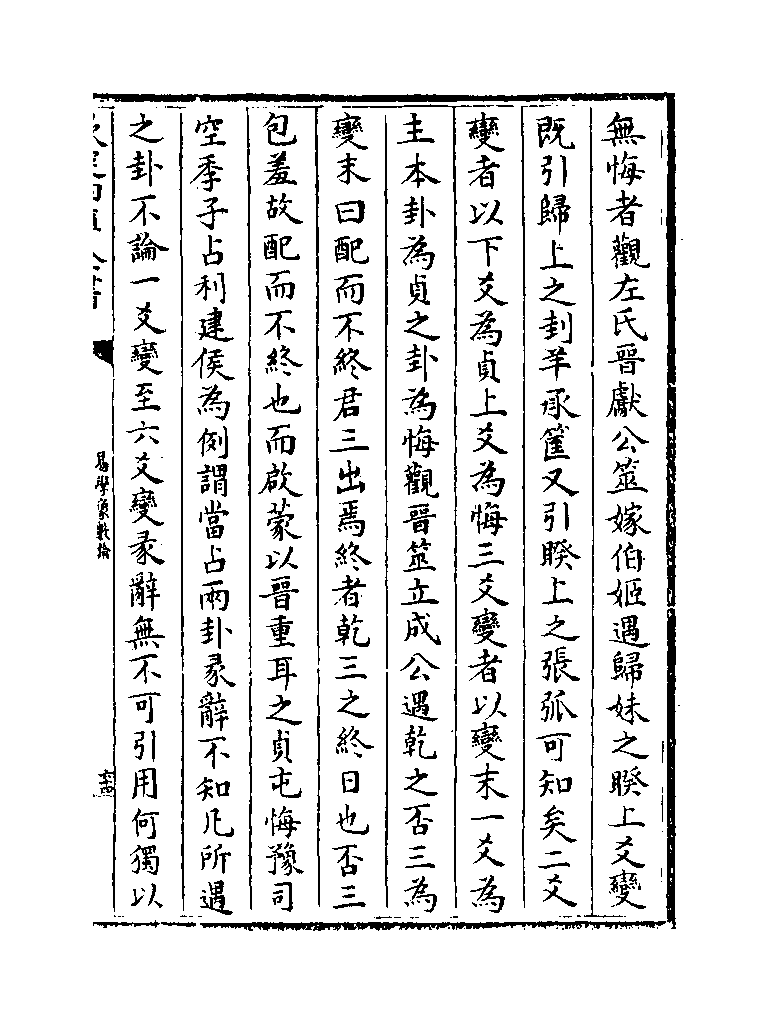 無悔者觀左氏晉獻公筮嫁伯姬遇歸妹之睽上爻變
既引歸上之刲羊承筐又引睽上之張弧可知矣二爻
變者以下爻為貞上爻為悔三爻變者以變末一爻為
主本卦為貞之卦為悔觀晉筮立成公遇乾之否三為
變末曰配而不終君三出焉終者乾三之終日也否三
包羞故配而不終也而啟蒙以晉重耳之貞屯悔豫司
空季子占利建侯為例謂當占兩卦彖辭不知凡所遇
之卦不論一爻變至六爻變彖辭無不可引用何獨以
易學象數論